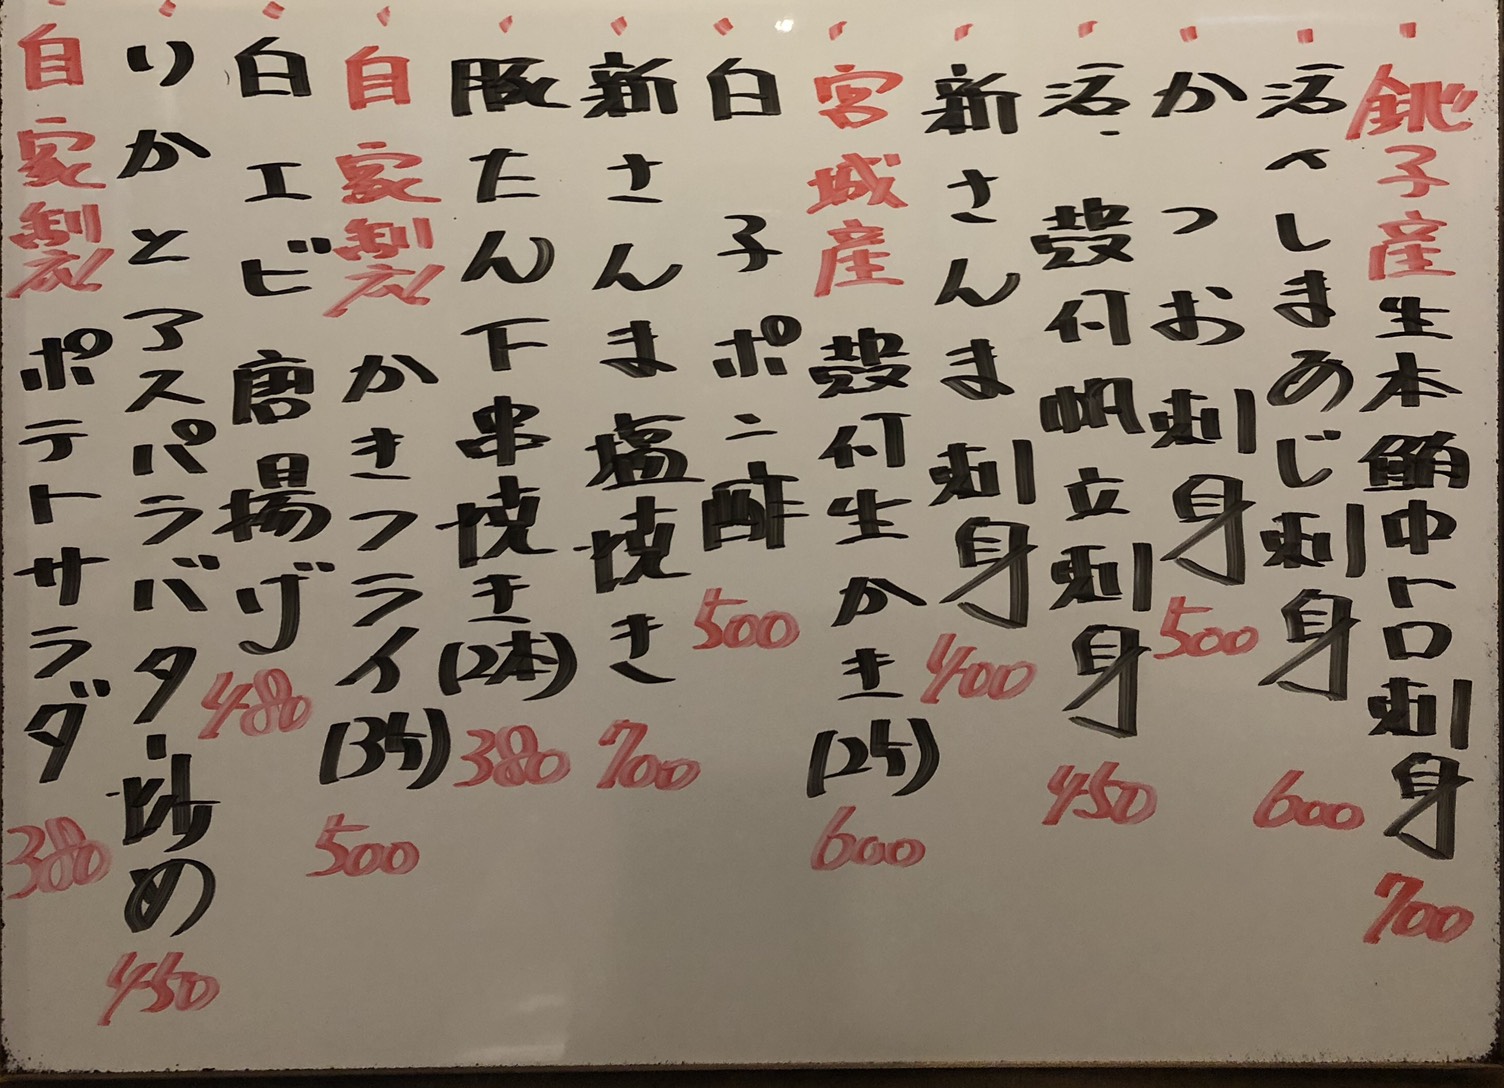 銚子産生本鮪中トロ刺身 700
活〆しまあじ刺身 600
かつお刺身 500
活殻付帆立刺身 450
新さんま刺身 400
宮城産殻付生かき(2ケ) 600
白子ポン酢 500
新さんま塩焼き 700
豚たん下串焼き(2本) 380
自家製かきフライ(3ケ) 500
白エビ唐揚げ 480
りかとアスパラバター炒め 450
自家製ポテトサラダ 380